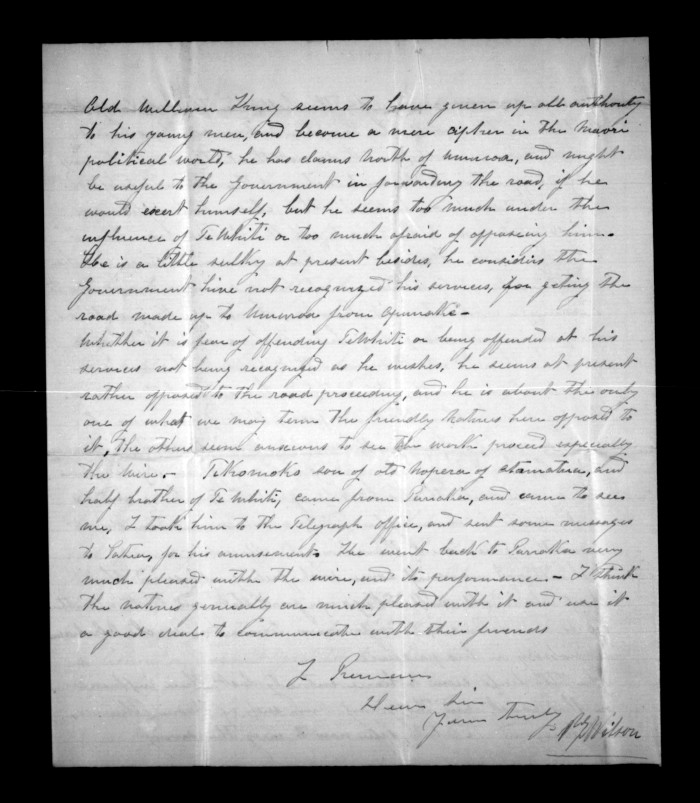 Old William King seems to have given up all authority
to his young men, and become a mere cipher in the Maori
political world, he has claims North of Umuroa, and might
be useful to the Government in forwarding the road, if he
would exert himself, but he seems too much under the
influence of Te Whiti or too much afraid of opposing him -
He is a little sulky at present besides, he considers the
Government have not recognized his services, for geting the
road made up to Umuroa from Opunake -
Whether it is fear of offending Te Whiti or being offended at his
services not being recognized as he wishes, he seems at present
rather opposed to the road proceeding, and he is about the only
one of what we may term the friendly natives here opposed to
it, the others seem anxious to see the work proceed especially
the wire. - Te Komoko son of old Nopera of and
half brother of Te Whiti, came from Parraka, and came to see
me, I took him to the Telegraph office, and sent some messages
to Patea, for his amusement. He went back to Parraka very
much pleased withe the wire, and its performance - I think
the natives generally are much pleased with it and use it
a good deal to communicate with their friends
I Remain
Dear Sir
Yours truly
Wilson